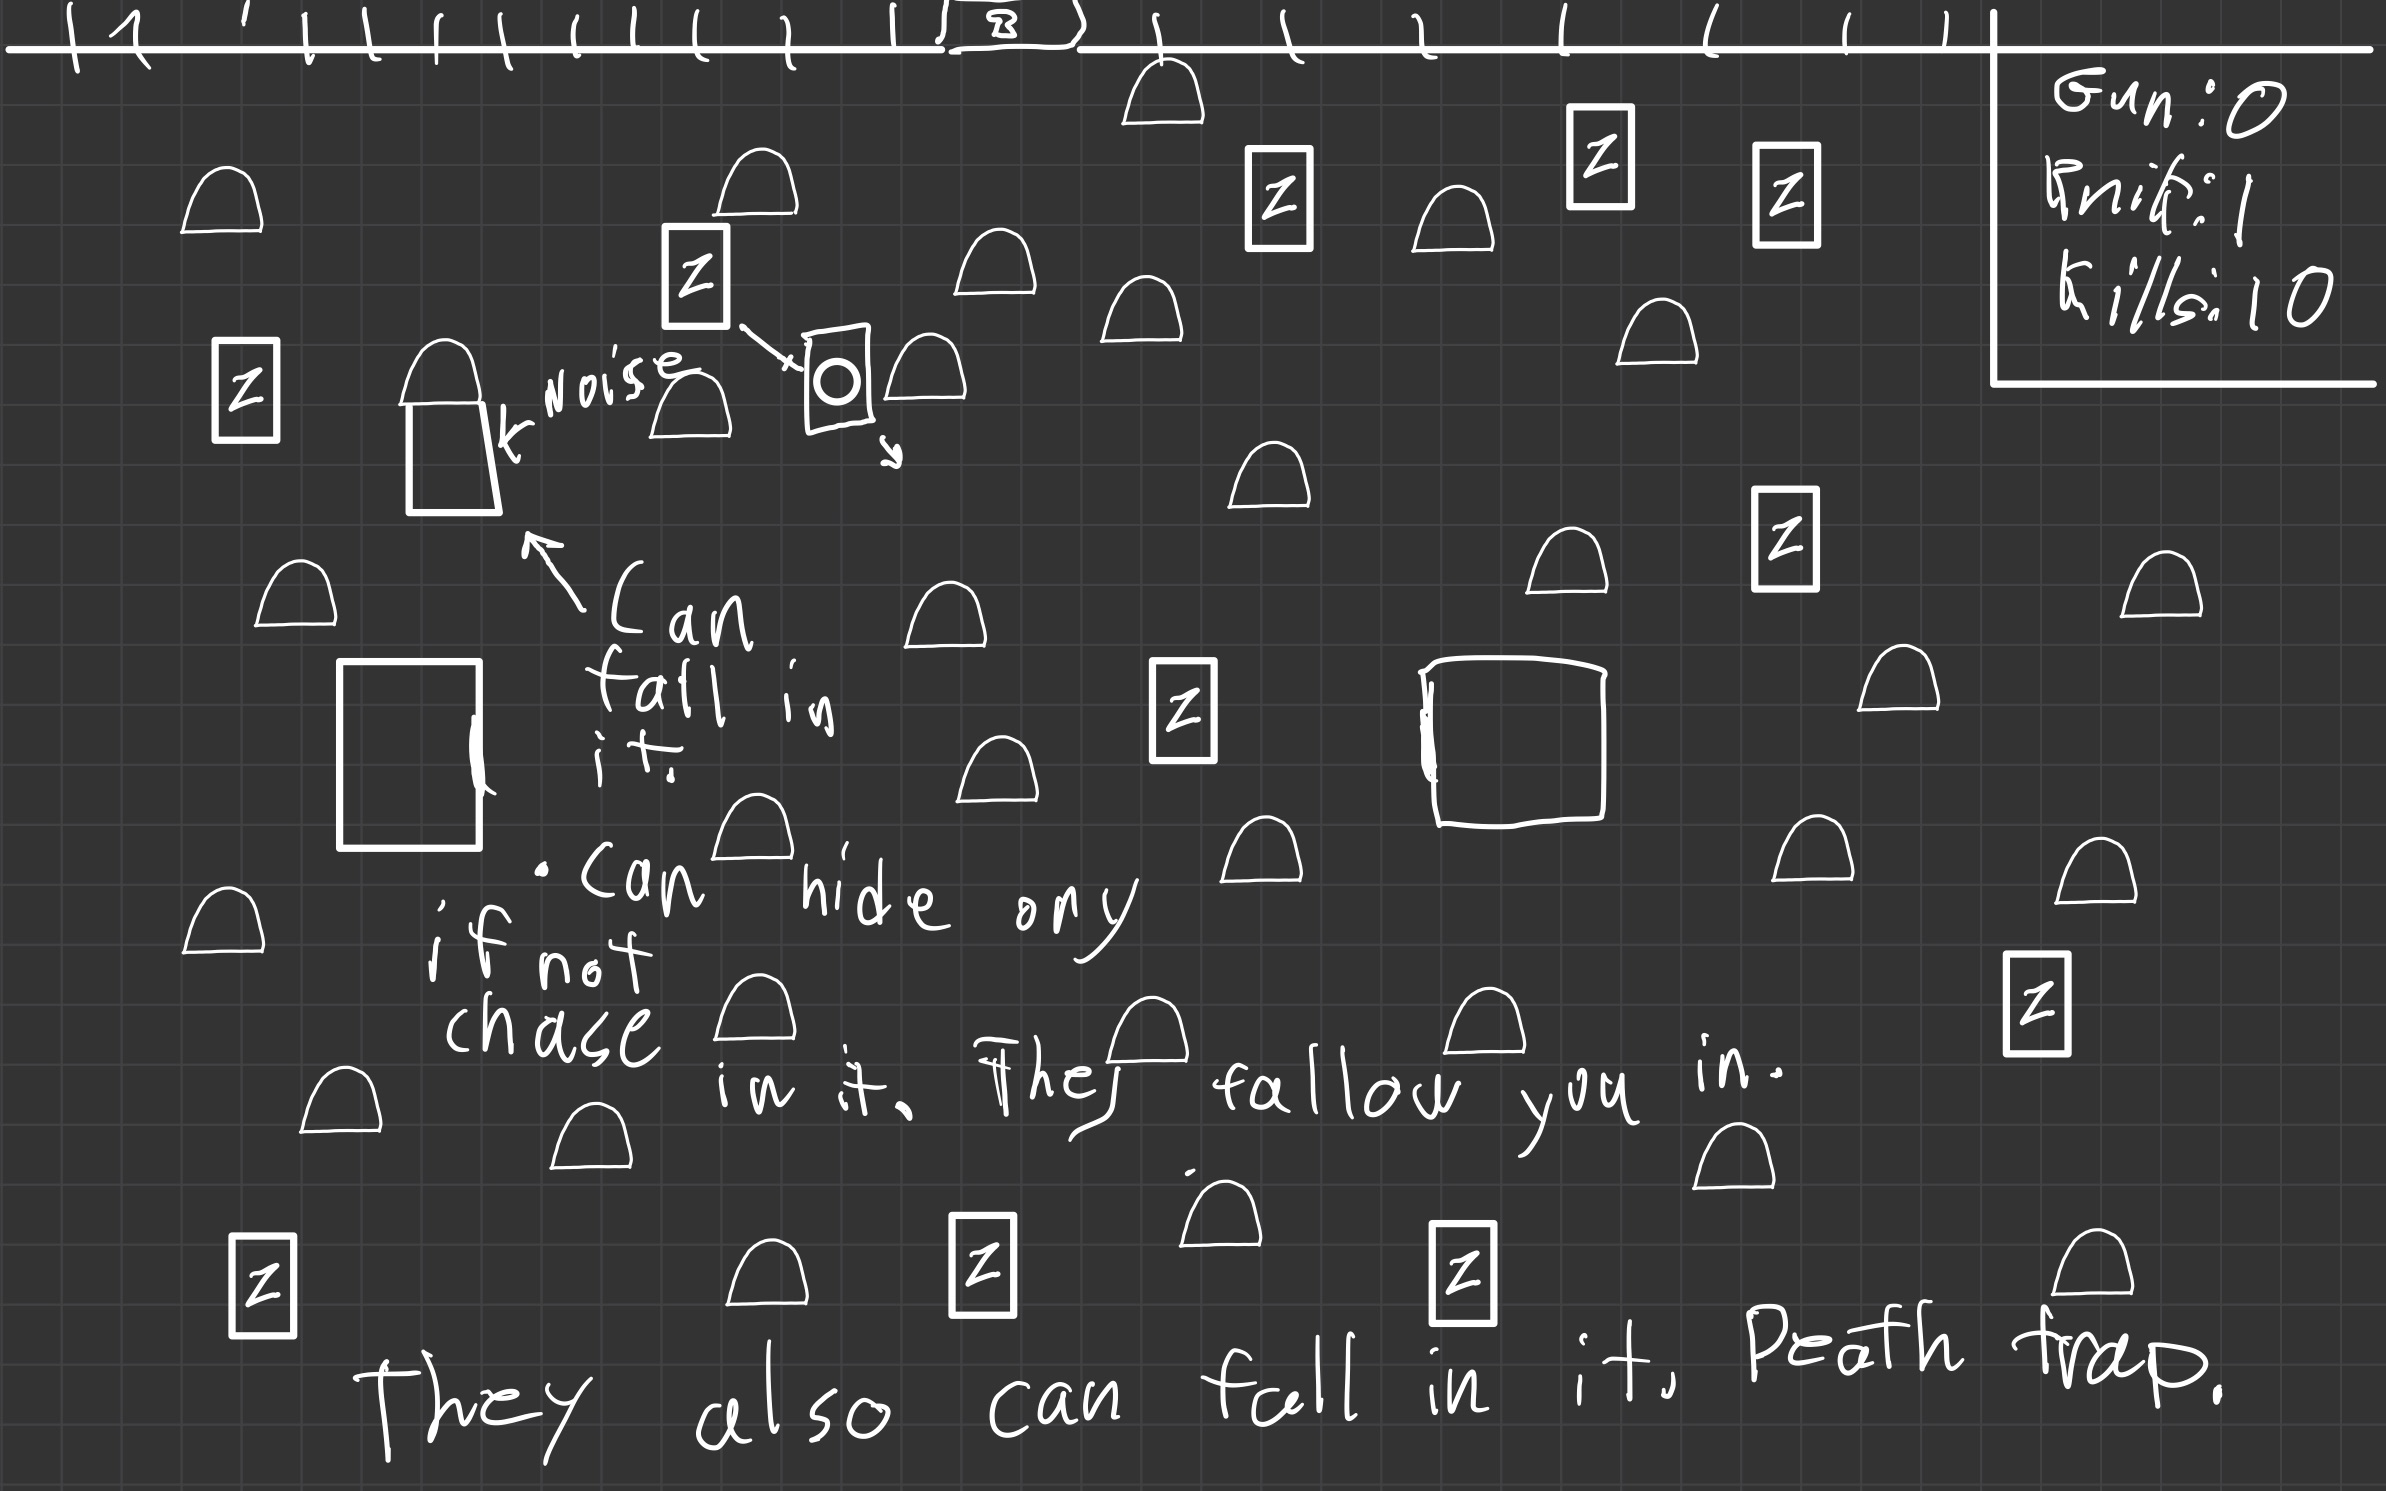 Gun: 0
Knif: 1
Kills: 10
Z
Z
Z
Z
Z
noise
K
Z
Can
fall in
it.
Z
• Can hide only
if not
chase
in it. They follow you in.
Z
Z
Z
Z
They also can fall in it. Death trap.